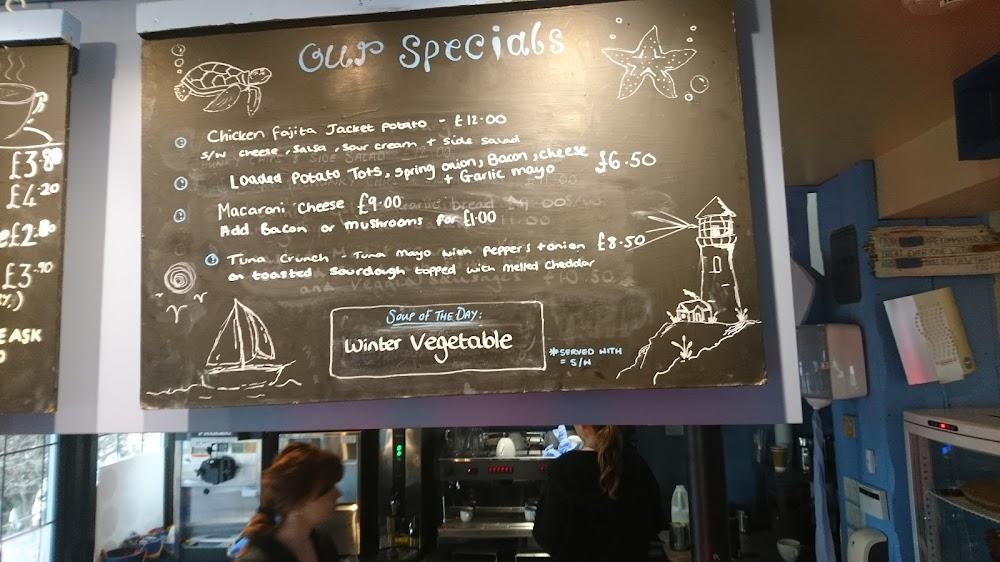 Our Specials
Chicken Fajita Jacket Potato - £12.00
S/W cheese, Salsa, Sour cream + side salad
Loaded Potato Tots, spring onion, Bacon, cheese £6.50
+ Garlic mayo
Macaroni Cheese £9.00
Add Bacon or mushrooms for £1.00
Tuna Crunch - Tuna mayo with pepper's + onion £8.50
on toasted sourdough topped with melted cheddar
Soup of The Day:
Winter Vegetable
*SERVED WITH
= S/W
£3.80
£4.20
£2.80
£3.90
E ASK